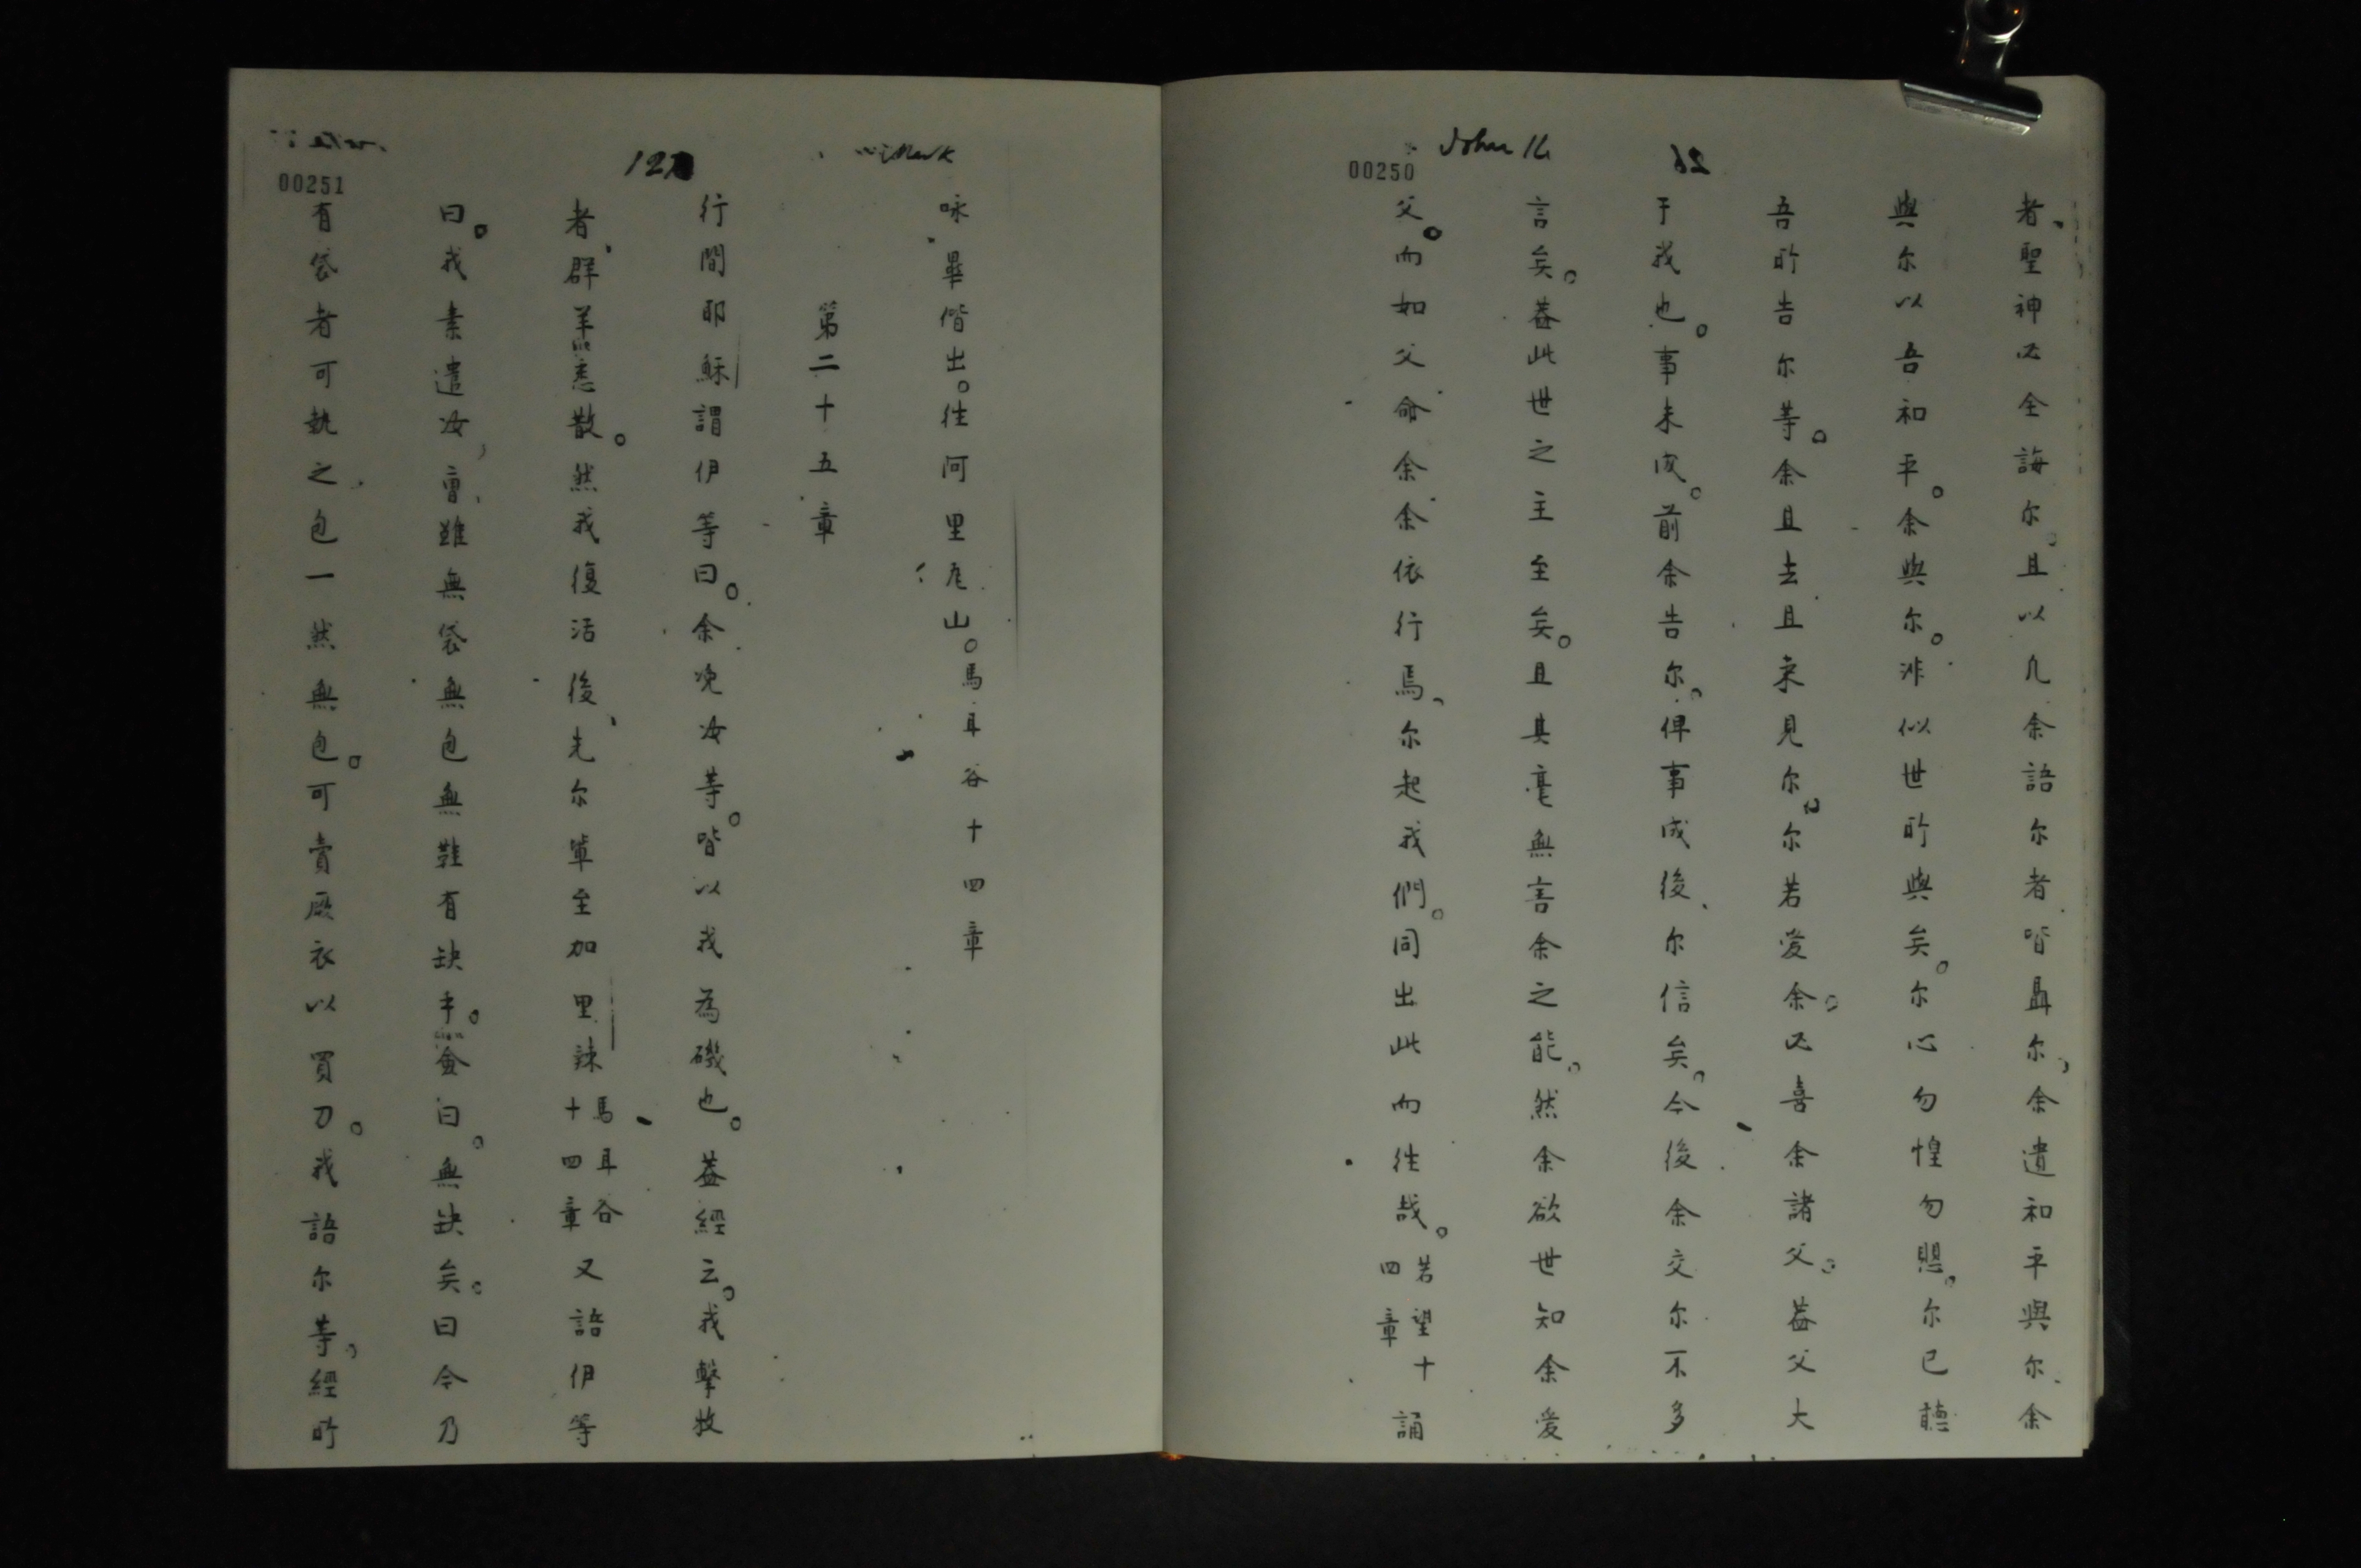 John 14
00250
者、聖神必全誨尔。且以凡余語尔者皆聶尔、余遺和平與尔、余
與尔以吾和平。余與尔。非似世所與矣。尔心勿惶勿思。尔已聽
吾所告尔等。余且去且來見尔。尔若愛余。必喜余諸父。葢父大
于我也。事未成。前余告尔。俾事成後、尔信矣。今後余交尔不多
言矣。葢此世之主至矣。且其毫無害余之能。然余欲世知余愛
父。而如父命余余依行焉、尔起我們。同出此而徃哉。若望十四章 誦
Mark
127
00251
咏畢偕出。徃阿里尼山。馬耳谷十四章
第二十五章
行間耶穌謂伊等曰。余晚汝等。皆以我為磯也。葢經云。我擊牧
者、群羊悉散。然我復活後、先尔軰至加里辣馬耳谷十四章又語伊等
曰。我素遣汝、曹、雖無袋無包無鞋有缺乎。僉曰。無缺矣。曰今乃
有袋者可執之、包一然無包。可賣厥衣以買刀。我語尔等、經所